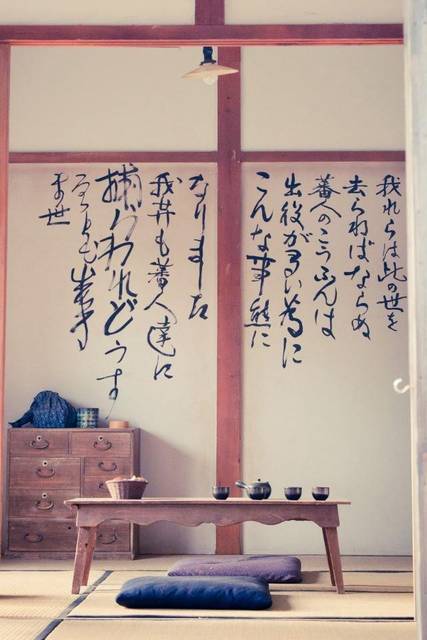 我れらは此の世を
去らねばならぬ
蕃人のこうふんは
出役が多い為に
こんな事態に
なりました
我等も蕃人達に
捕はわれどうする
ことも出来ま
せ